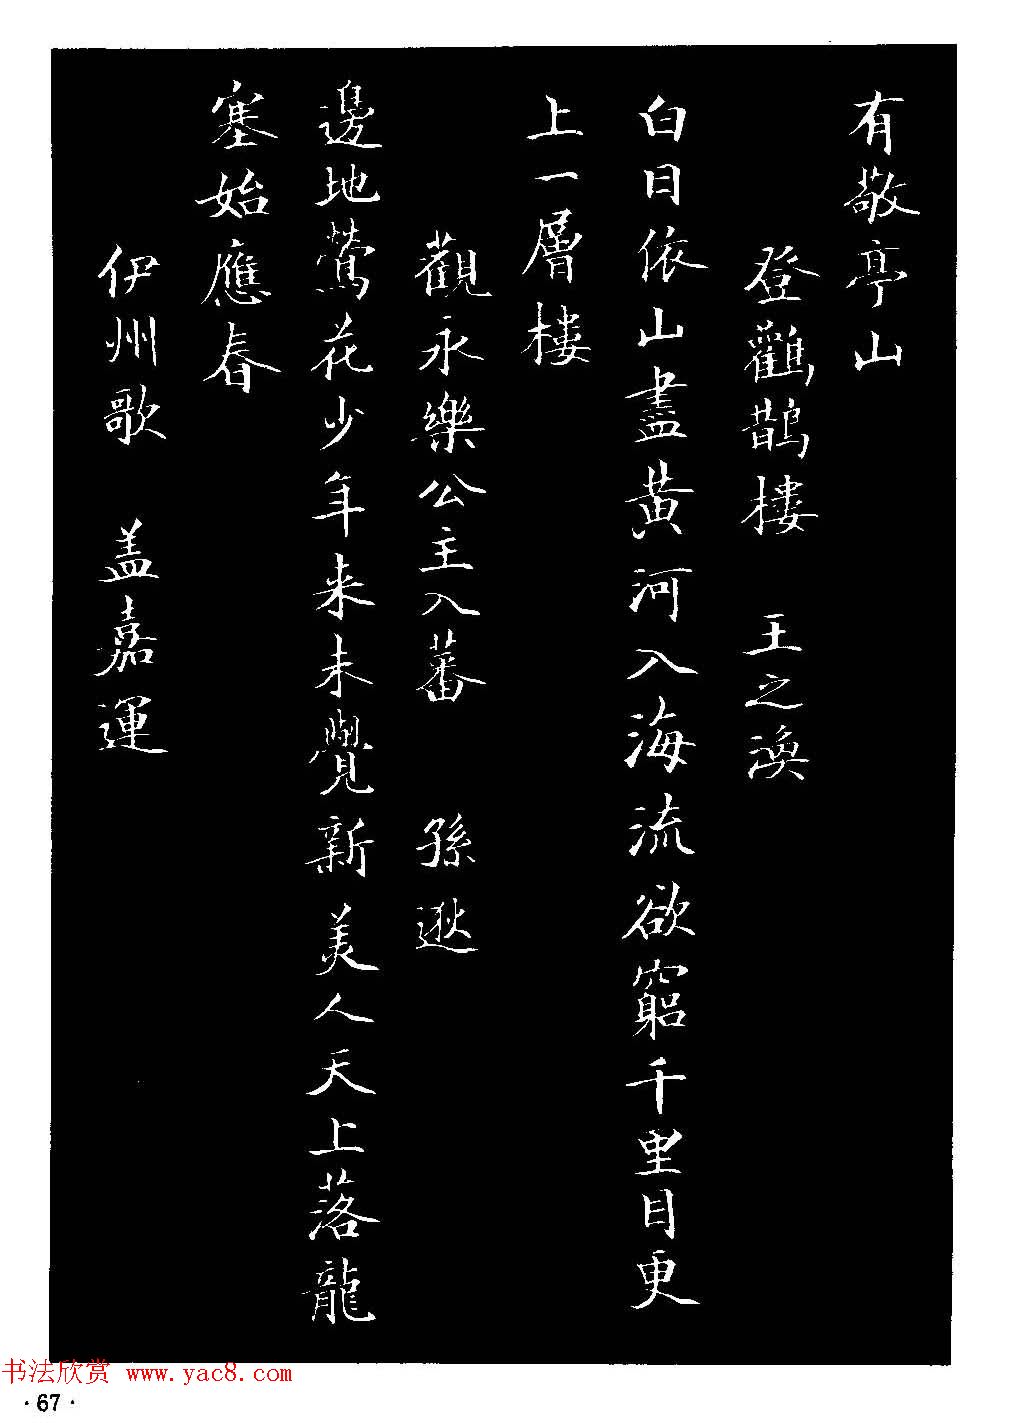 有敬亭山
登鸛鵲樓 王之渙
白日依山盡黄河入海流欲窮千里目更
上一層樓
觀永樂公主入蕃 孫逖
邊地鶯花少年来未覺新美人天上落龍
塞始應春
伊州歌 盖嘉運
书法欣赏 www.yac8.com
·67·